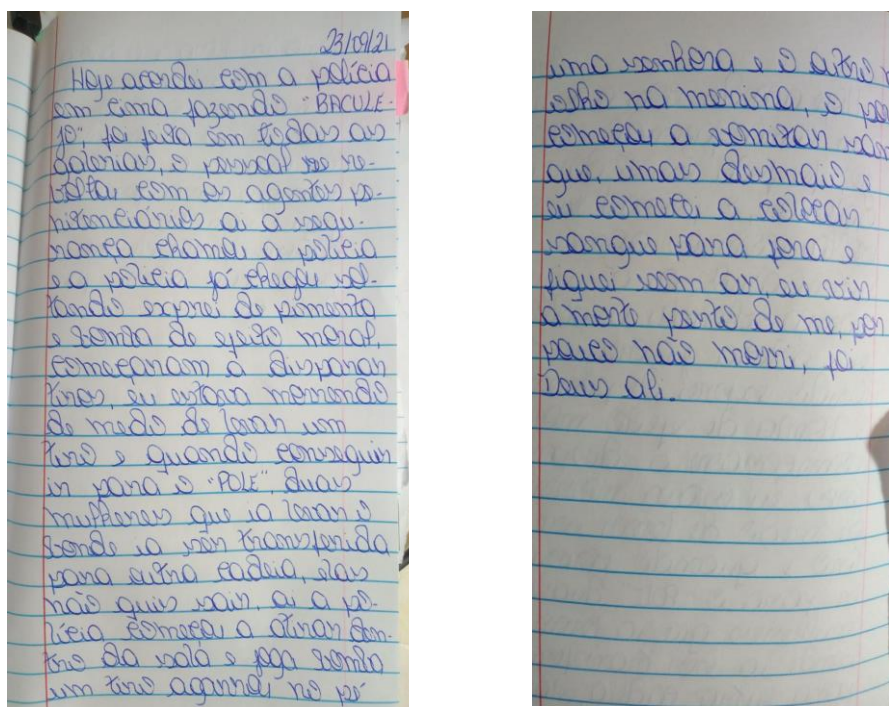 23/09/21
Hoje acordei com a polícia
em cima fazendo "BACULE-
JO", foi para em todas as
galerias, o pessoal se re-
voltou com os agentes pe-
nitenciários ai a segu-
rança chamou a polícia
e a polícia já chegou sol-
tando exprei de pimenta
e bomba de efeito moral,
começaram a disparar
tiros, eu estava morrendo
de medo de levar um
tiro e quando conseguir
ir para o "POLE". duas
mulheres que ia levar o
bonde ia ser transferida
para outra cadeia, elas
não quis sair, ai a po-
lícia começou a atirar den-
tro da sala e joga bomba
um tiro agarrou no pé
uma senhora e o outro
olho na menina, o
começou a vomitar san
gue, umas desmaio e
eu comecei a colocar
sangue para fora e
fiquei sem ar, eu vir
a morte perto de me, por
pouco não morri, foi
Deus ali.